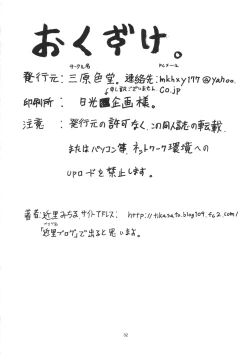 おくづけ。
サークル名
PCメール
発行元：三原色堂。連絡先：mkhxy177@yahoo.
co.jp
↓申し訳ございません
印刷所：日光企画様。
注意：発行元の許可なく、この同人誌の転載、
またはパソコン等、ネットワーク環境への
upロードを禁止します。
著者：近里みちる。サイトアドレス：http://tikasato.blog109.fc2.com/
「近里ブログ」で出ると思います。